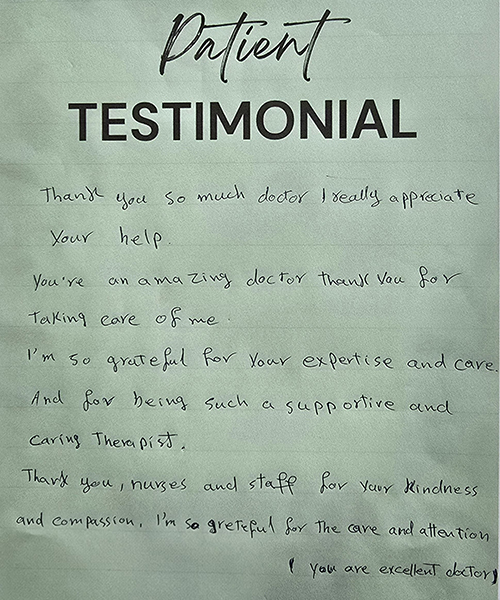 Patient
TESTIMONIAL
Thank you so much doctor I really appreciate
your help.
You're an amazing doctor thank you for
taking care of me.
I'm so grateful for your expertise and care.
And for being such a supportive and
caring Therapist.
Thank you, nurses and staff for your kindness
and compassion. I'm so greteful for the care and attention
( you are excellent doctor)